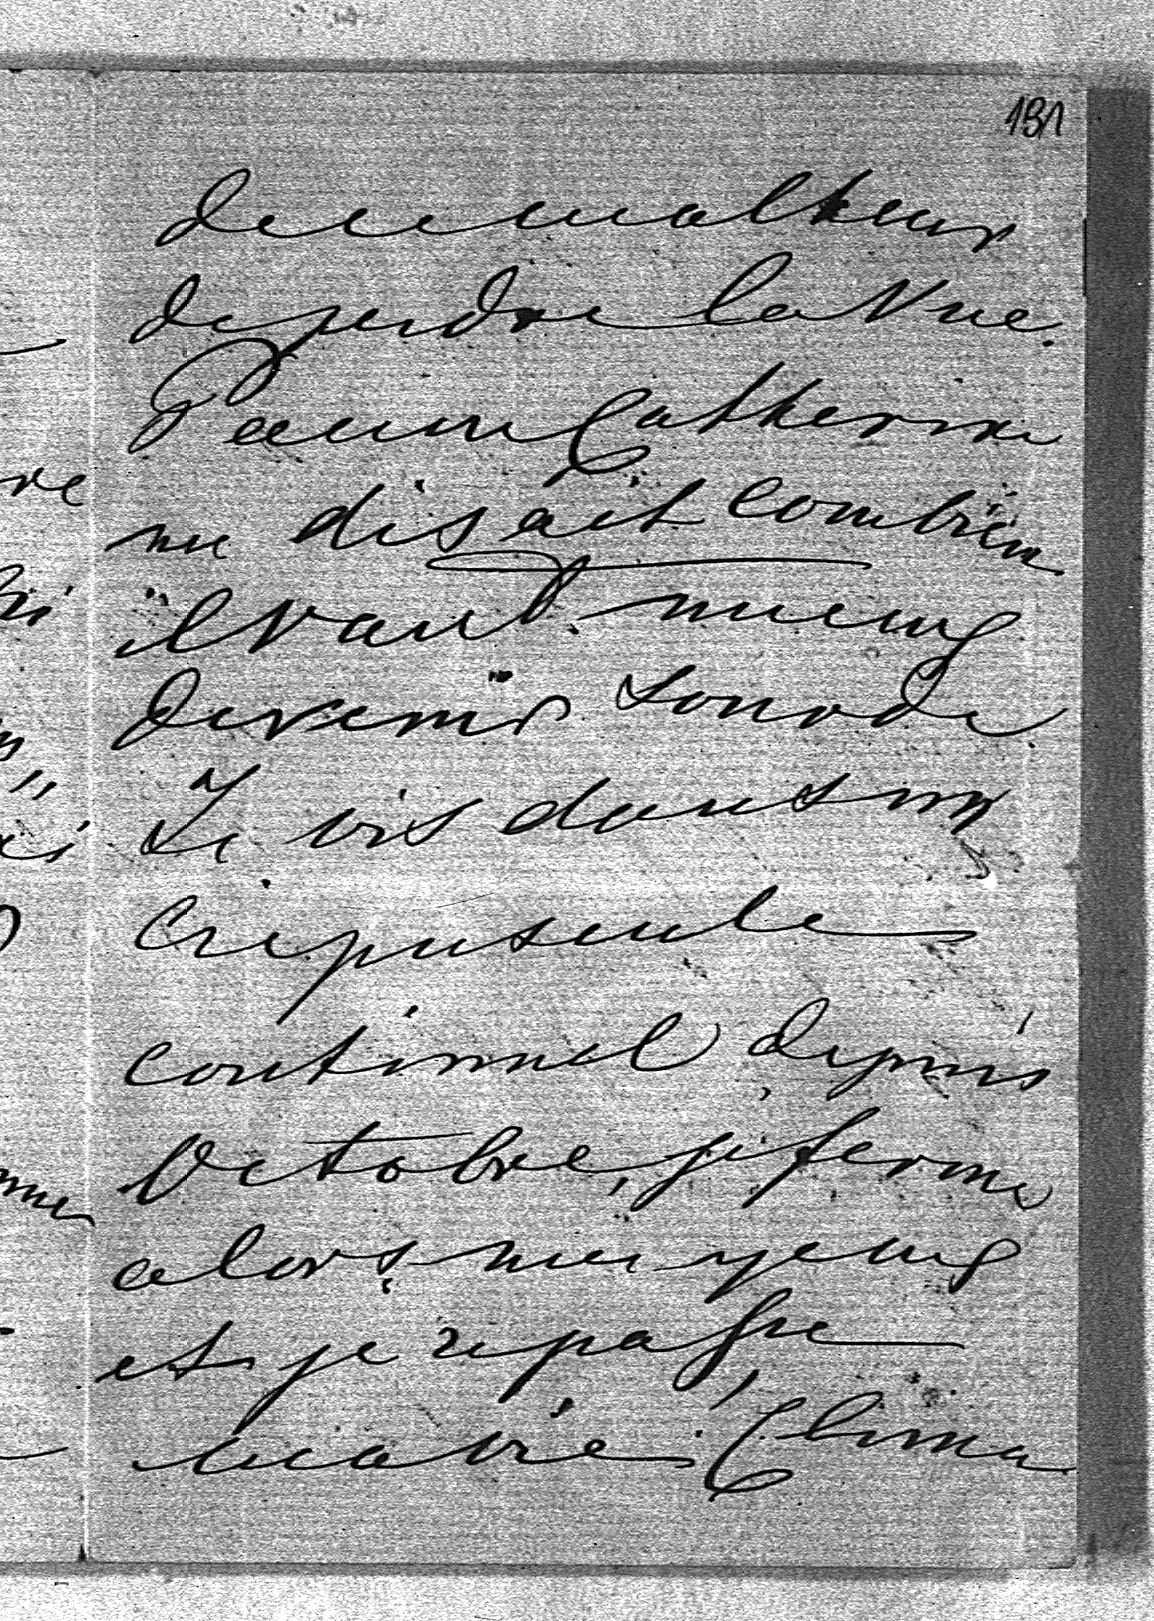 131
de ce malheur
de perdre la vue.
Pauvre Catherine
me disait combien
il vaut mieux
devenir sourde.
Je vis dans un
crépuscule
continuel depuis
Octobre, je ferme
alors mes yeux
et je repasse
ma vie.